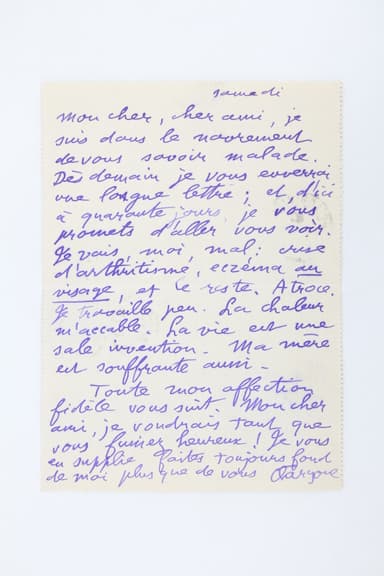 samedi
mon cher, cher ami, je
suis dans le navrement
de vous savoir malade.
Dès demain je vous enverrai
une longue lettre ; et, d'ici
à quarante jours, je vous
promets d'aller vous voir.
Je vais, moi, mal : crise
d'arthritisme, eczéma au
visage, et le reste. Atroce.
Je travaille peu. La chaleur
m'accable. La vie est une
sale invention. Ma mère
est souffrante aussi -
Toute mon affection
fidèle vous suit. Mon cher
ami, je voudrais tant que
vous fussiez heureux ! Je vous
en supplie faites toujours fond
de moi plus que de vous